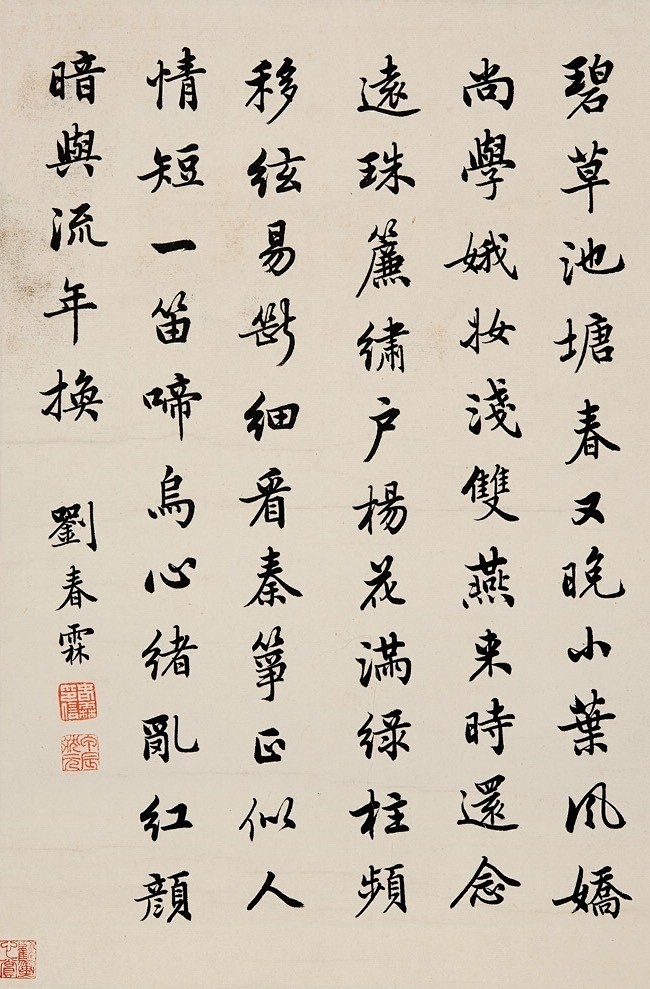 碧草池塘春又晚小葉風嬌
尚學娥妝淺雙燕来時還念
遠珠簾繡户楊花滿緑柱頻
移絃易斷細看秦箏正似人
情短一笛啼烏心緒亂紅顔
暗與流年換
劉春霖
甲辰狀元